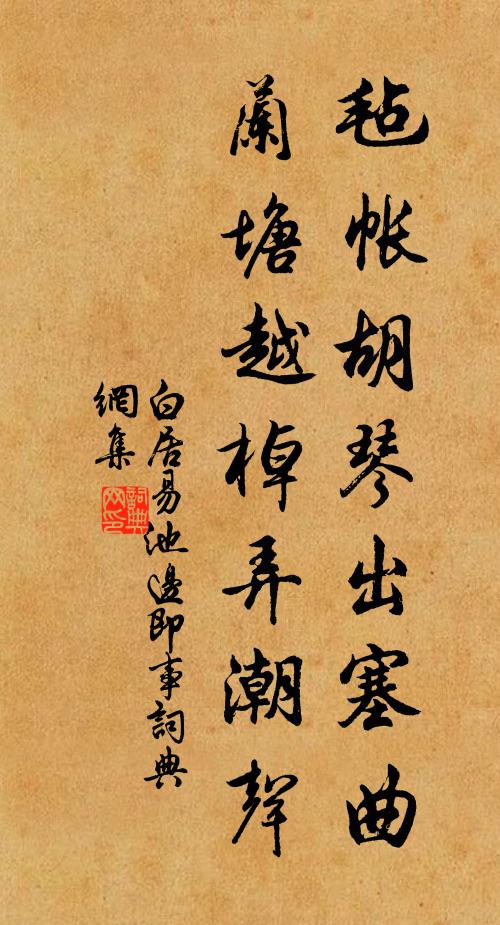 毡帐胡琴出塞曲
蘭塘越棹弄潮聲
白居易池邊即事詞典
網集
詞典
网印